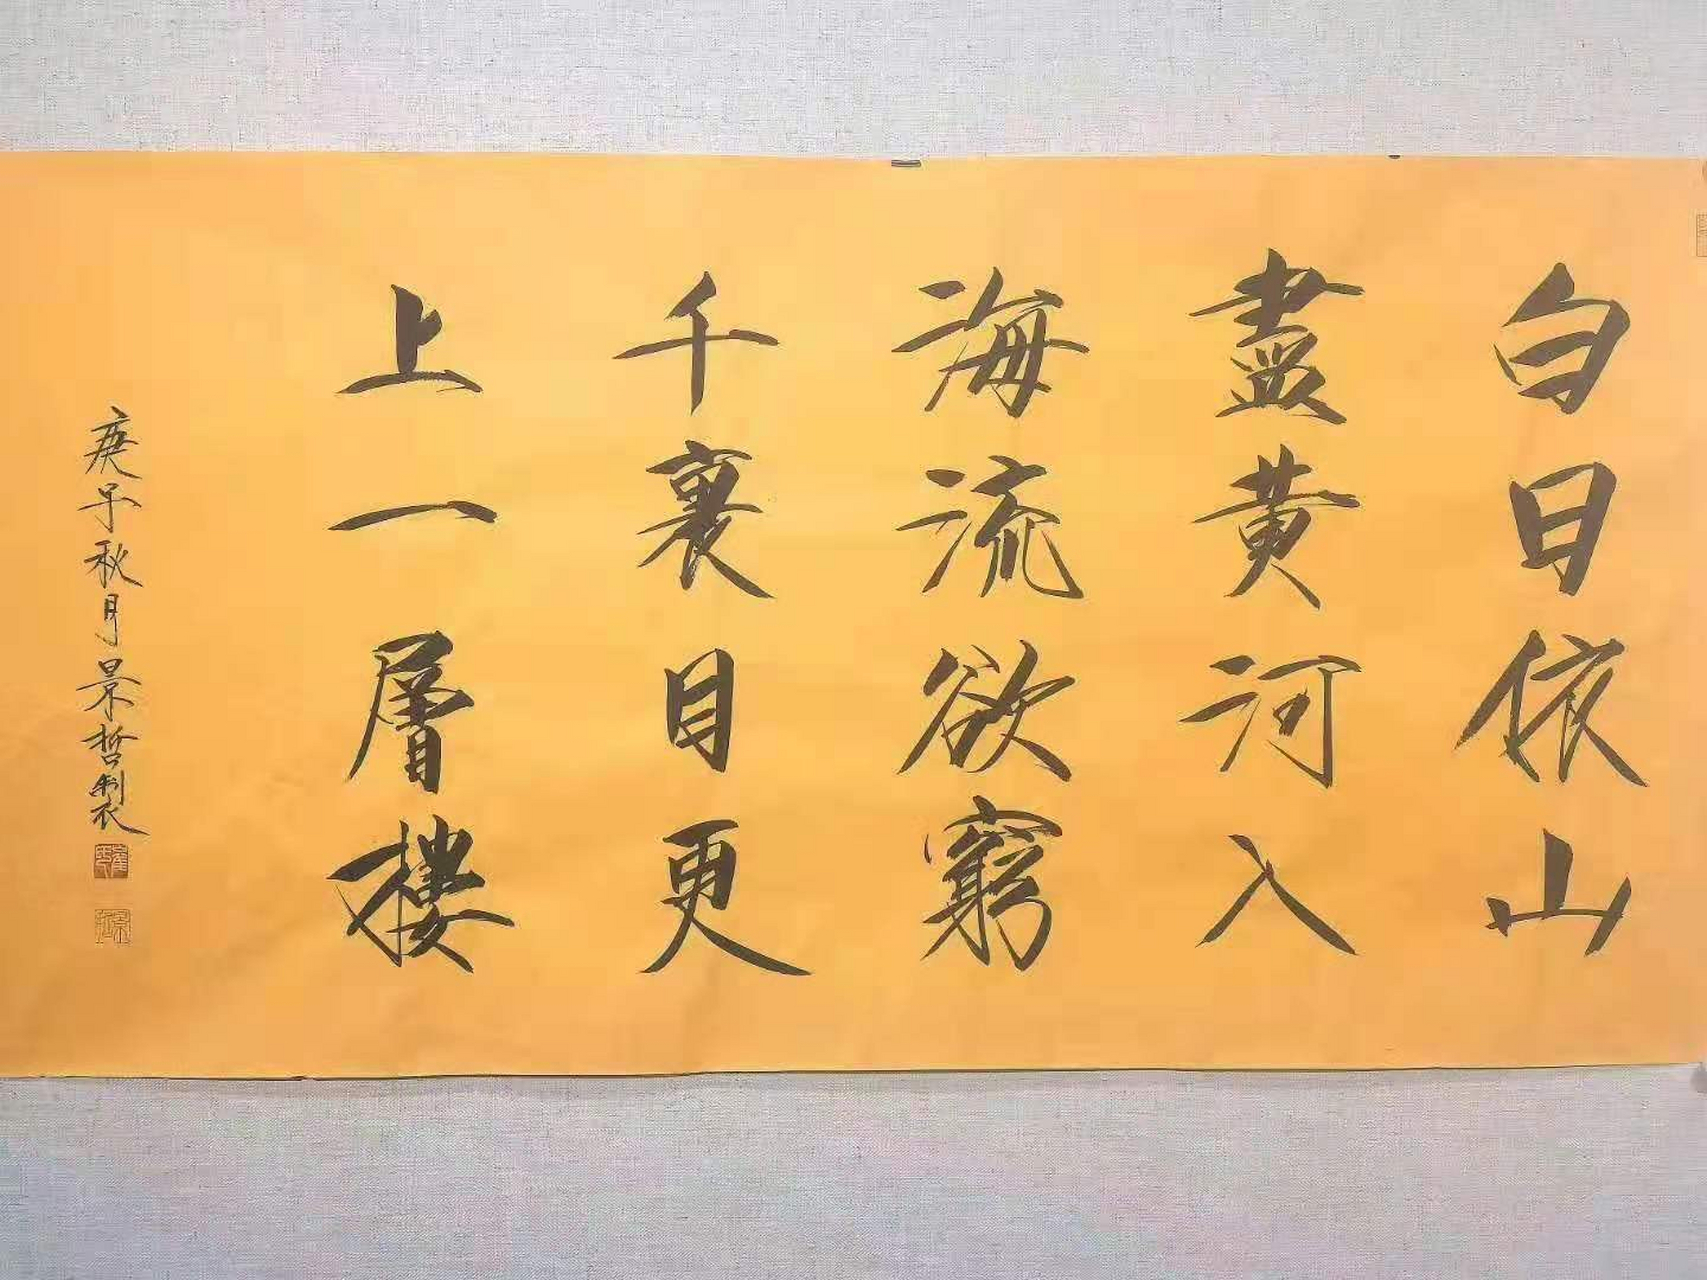 白日依山
盡黄河入
海流欲窮
千裏目更
上一層樓
庚子秋月景哲製